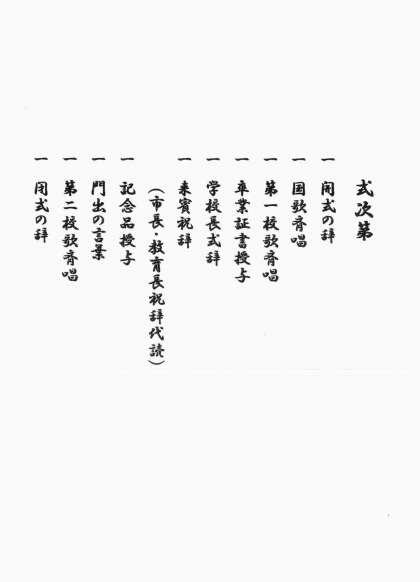 式次第
一 開式の辞
一 国歌斉唱
一 第一校歌斉唱
一 卒業証書授与
一 学校長式辞
一 来賓祝辞
(市長・教育長祝辞代読)
一 記念品授与
一 門出の言葉
一 第二校歌斉唱
一 閉式の辞